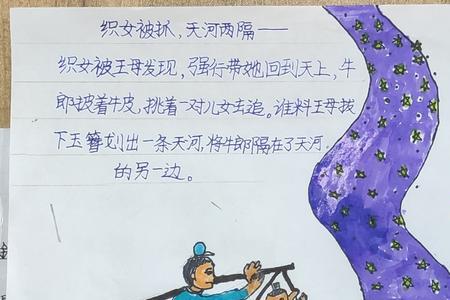 织女被抓，天河两隔——
织女被王母发现，强行带她回到天上，牛
郎披着牛皮，挑着一对儿女去追。谁料王母拔
下玉簪划出一条天河，将牛郎隔在了天河
的另一边。